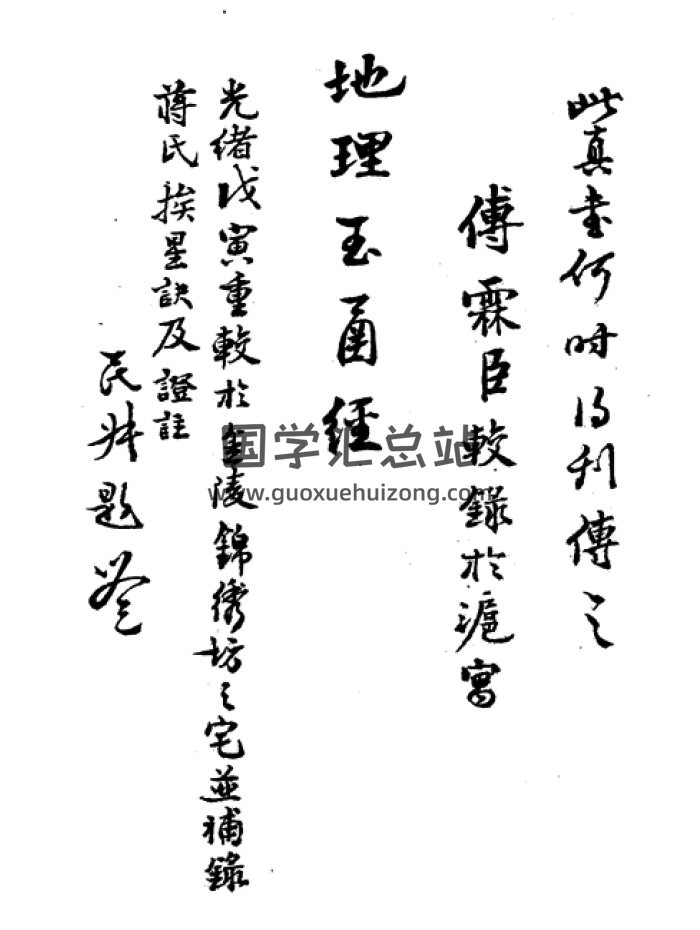 此真書何時得刊傳之
傅霖臣較錄於滬寓
地理玉函經
光緒戊寅重較於金陵錦繡坊之宅並補錄
蔣氏挨星訣及證註
民牀題簽
国学汇总站
www.guoxuehuizong.com